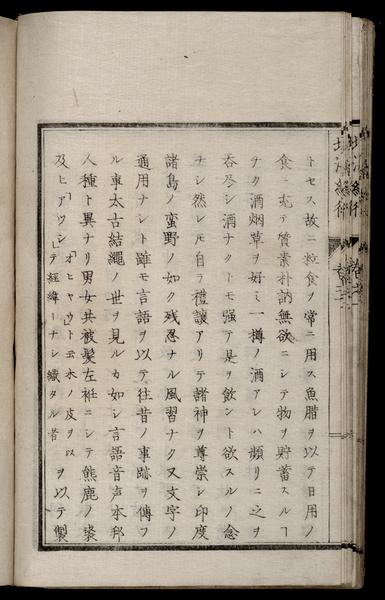 トセス故ニ粒食ヲ常ニ用ス魚腊ヲ以テ日用ノ
食ニ充テ質素朴訥無欲ニシテ物ヲ貯蓄スルヿ
ヲク酒烟草ヲ好ミ一樽ノ酒アレハ頻リニ之ヲ
呑尽シ酒ナクトモ强テ是ヲ飲ント欲スルノ念
ナシ然レモ自ラ禮讓アリテ諸神ヲ尊崇シ印度
諸島ノ蛮野ノ如ク残忍ナル風習ナク又文字ノ
通用ナシト雖モ言語ヲ以テ往昔ノ事跡ヲ傳フ
ル事太古結繩ノ世ヲ見ルカ如シ言語音声本邦
人種ト異ナリ男女共被髮左衽ニシテ熊鹿ノ裘
及ヒ「アツシ」「オヒヤウト云木ノ皮ヲ以テ經緯ーナシ織タル者」ヲ以テ製